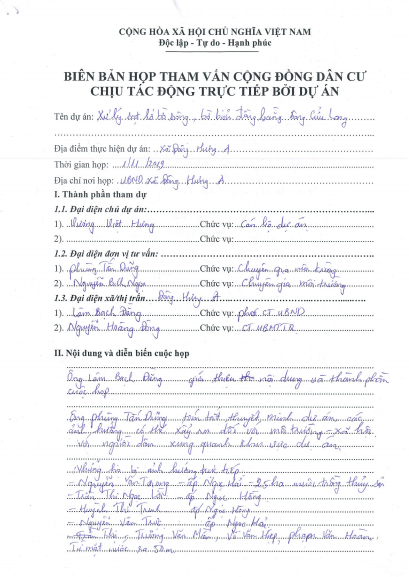 CỘNG HÒA XÃ HỘI CHỦ NGHĨA VIỆT NAM
Độc lập - Tự do - Hạnh phúc
BIÊN BẢN HỌP THAM VẤN CỘNG ĐỒNG DÂN CƯ
CHỊU TÁC ĐỘNG TRỰC TIẾP BỞI DỰ ÁN
Tên dự án: Xử lý sạt lở bờ sông, bờ biển đồng bằng sông Cửu Long
Địa điểm thực hiện dự án: xã Đông Hưng A
Thời gian họp: 1/11/2019
Địa chỉ nơi họp: UBND xã Đông Hưng A
I. Thành phần tham dự
1.1. Đại diện chủ dự án:
1). Vương Việt Hưng Chức vụ: Cán bộ dự án
2). Chức vụ:
1.2. Đại diện đơn vị tư vấn:
1). Phùng Tấn Dũng Chức vụ: Chuyên gia môi trường
2). Nguyễn Bích Ngọc Chức vụ: Chuyên gia môi trường
1.3. Đại diện xã/thị trấn Đông Hưng A
1). Lâm Bạch Đằng Chức vụ: phó CT UBND
2). Nguyễn Hoàng Đông Chức vụ: CT UBMTTQ
II. Nội dung và diễn biến cuộc họp
Ông Lâm Bạch Đằng giới thiệu nội dung và thành phần
cuộc họp
Ông Phùng Tấn Dũng tóm tắt thuyết minh dự án, các
ảnh hưởng có thể xảy ra đối với môi trường xã hội
với người dân xung quanh khu vực dự án.
Những hộ bị ảnh hưởng trực tiếp
- Nguyễn Văn Trạng - ấp Ngọc Hải - 2,5 ha nuôi trồng thủy sản
- Trần Thị Ngọc Lợi - ấp Ngọc Hồng
- Huỳnh Thị Trinh ấp Ngọc Hồng
- Nguyễn Văn Trức ấp Ngọc Hải
Trương Văn Mẫn, Võ Văn Hiệp, phạm Văn Hoàn
Từ mặt nước ra 50m